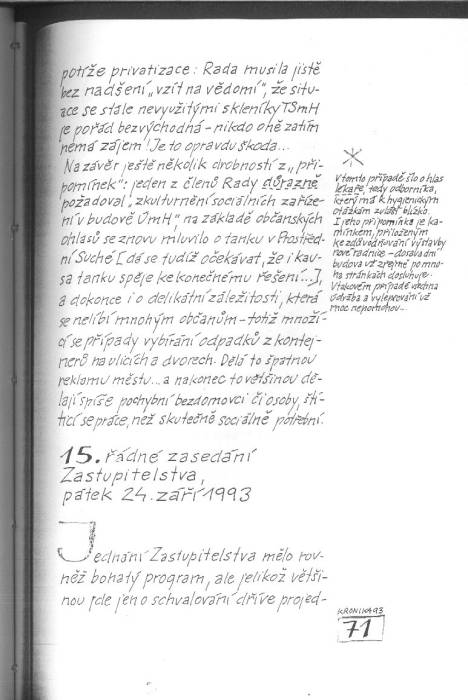 potíže privatizace: Rada musila jistě
bez nadšení „vzít na vědomí", že situ-
ace se stále nevyužitými skleníky TSmH
je pořád bezvýchodná - nikdo o ně zatím
nemá zájem! Je to opravdu škoda...
Na závěr ještě několik drobností z „při-
pomínek": jeden z členů Rady důrazně
požadoval „zkulturnění sociálních zaříze-
ní v budově ÚmH", na základě občanských
ohlasů se znovu mluvilo o tanku v Prostřed-
ní Suché [dá se tudíž očekávat, že i kau-
sa tanku spěje ke konečnému řešení...],
a dokonce i o delikátní záležitosti, která
se nelíbí mnohým občanům - totiž množí-
cí se případy vybírání odpadků z kontej-
nerů na ulicích a dvorech. Dělá to špatnou
reklamu městu... a nakonec to většinou dě-
lají spíše pochybní bezdomovci či osoby, ští-
tící se práce, než skutečně sociálně potřební.
15. řádné zasedání
Zastupitelstva,
pátek 24. září 1993
Jednání Zastupitelstva mělo rov-
něž bohatý program, ale jelikož větši-
nou jde jen o schvalování dříve projed-
*
V tomto případě šlo o hlas
lékaře, tedy odborníka,
který má k hygienickým
otázkám zvlášť blízko.
I jeho připomínka je ka-
mínkem, přiloženým
ke zdůvodňování výstavby
nové radnice - dosavadní
budova už zřejmě po mno-
ha stránkách dosluhuje.
V takovém případě všechna
údržba a vylepšování už
moc nepomohou...
KRONIKA 93
71